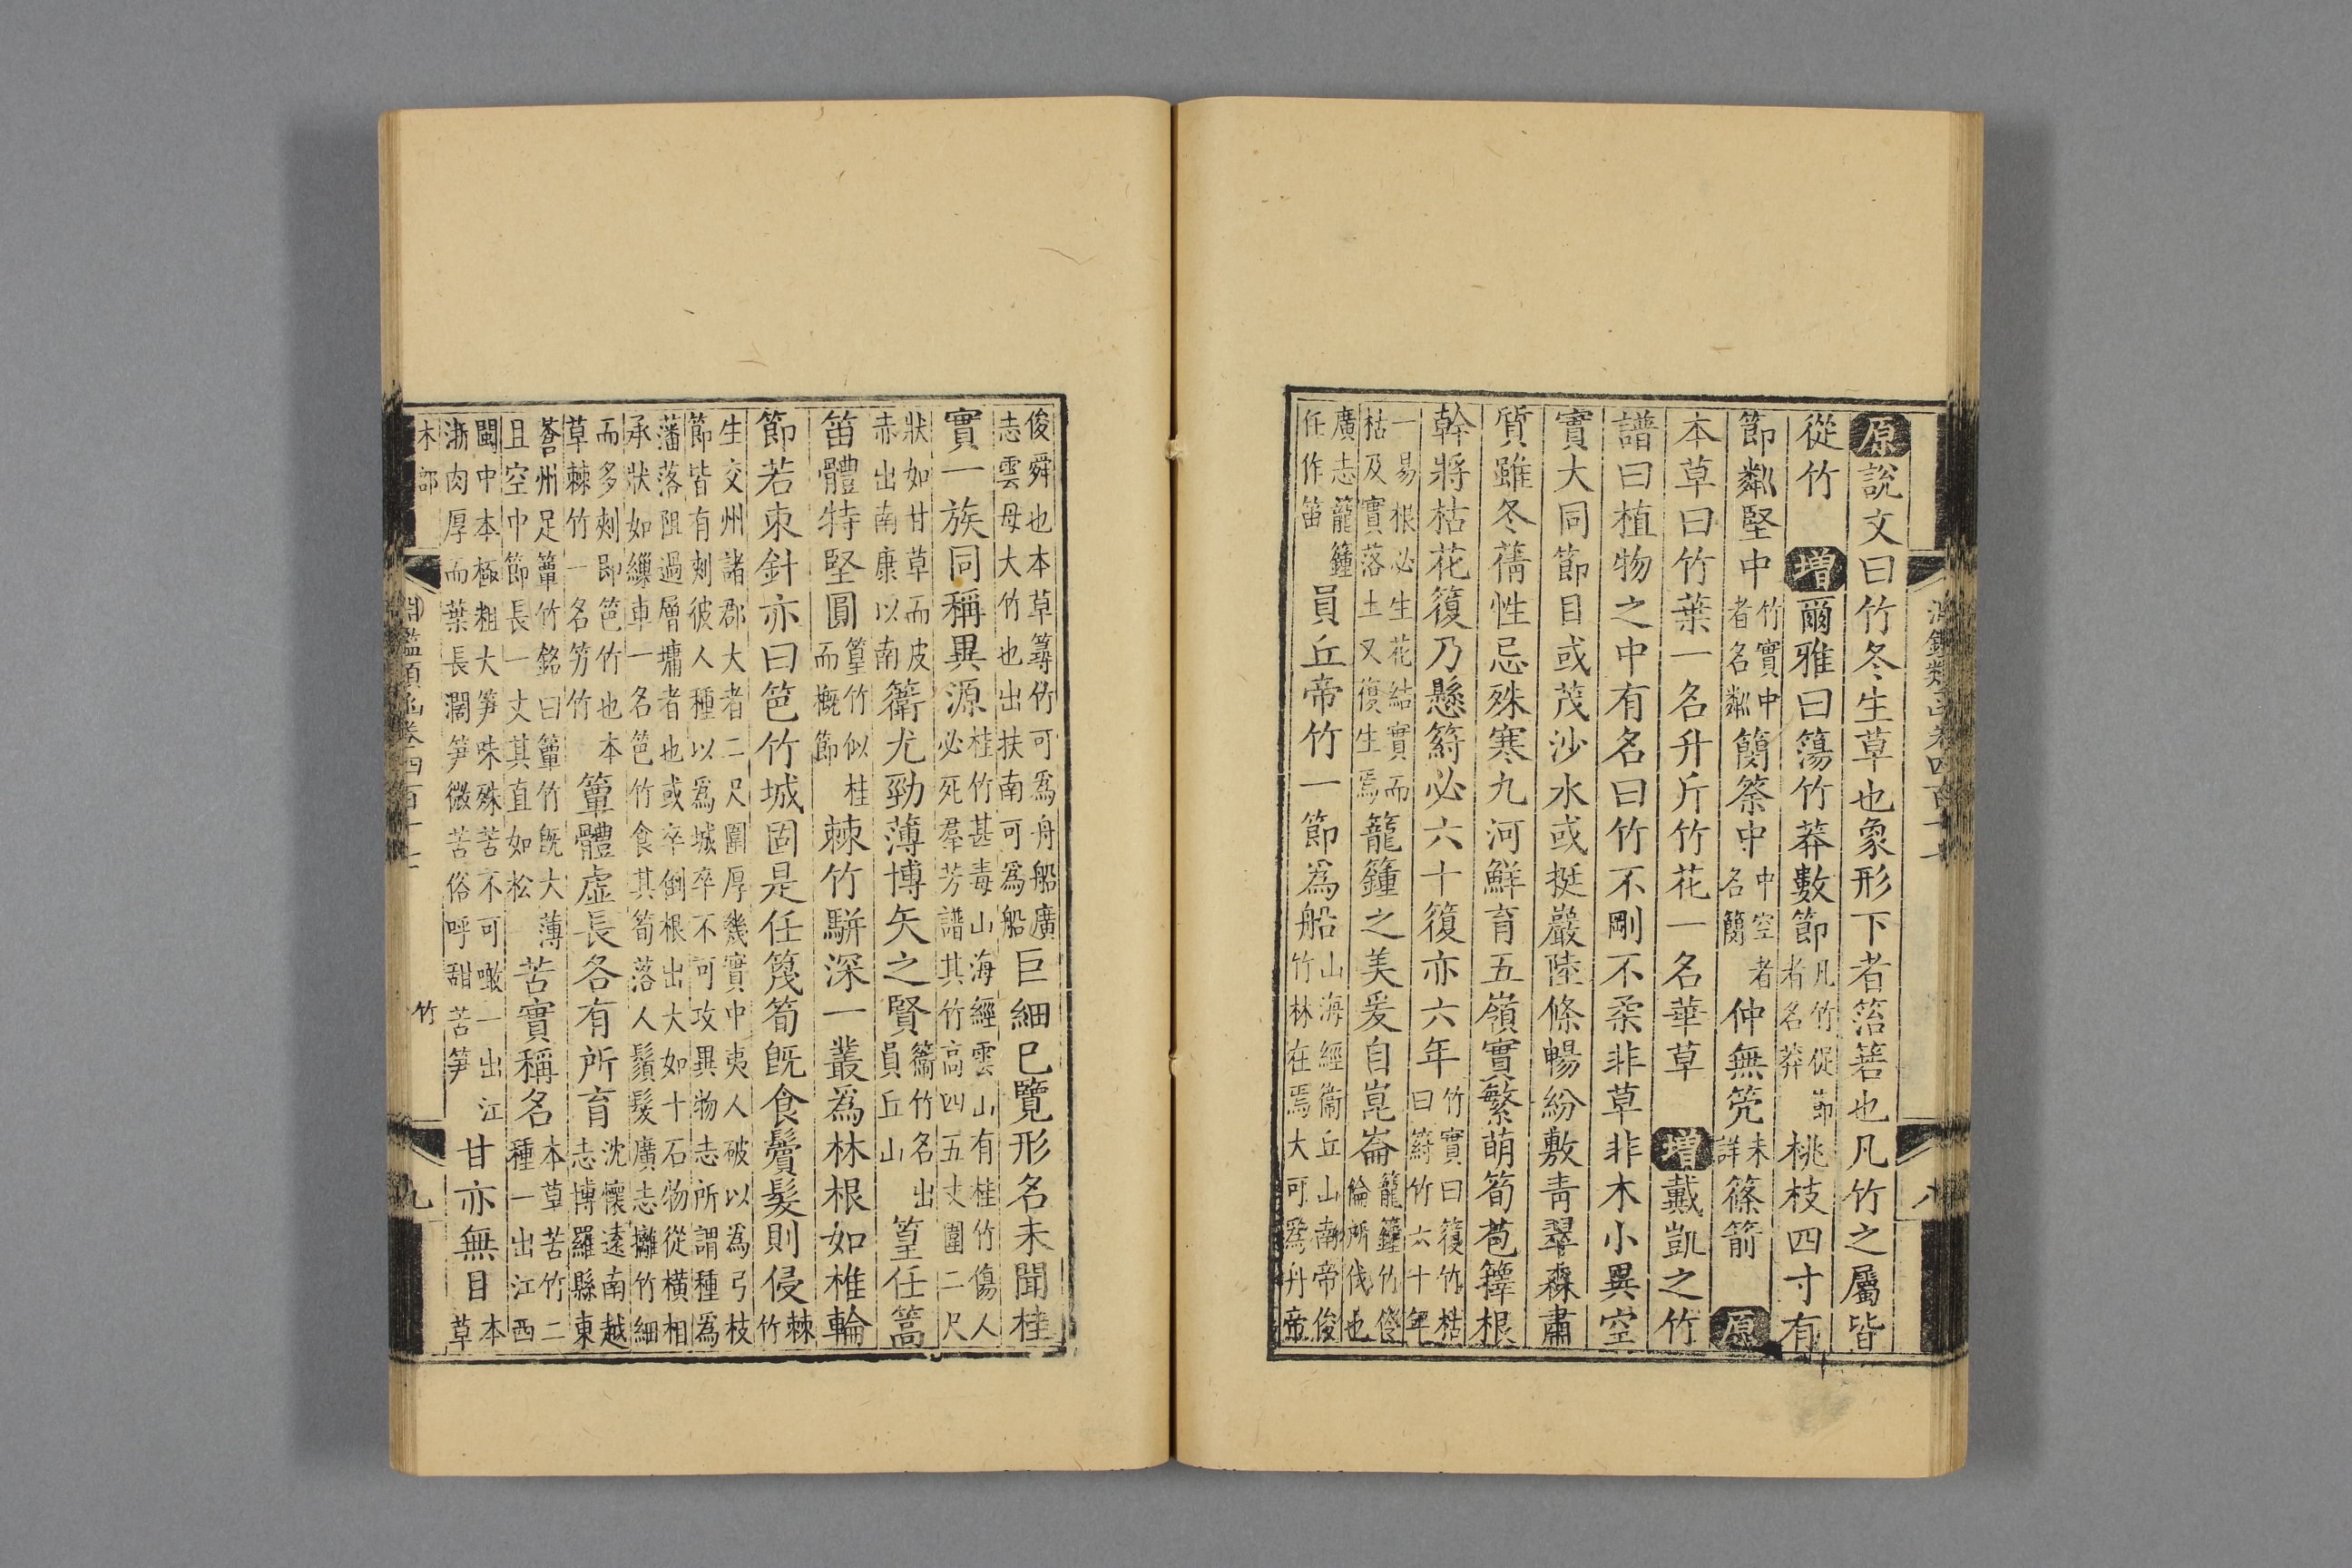 原說文曰竹冬生草也象形下者箈箬也凡竹之屬皆
從竹　增爾雅曰簜竹莽數節凡竹促節者名莽桃枝四寸有
節粼堅中竹實中者名粼簡筡中中空者名簡仲無笐未詳篠箭　原
本草曰竹葉一名升斤竹花一名華草　增戴凱之竹
譜曰植物之中有名曰竹不剛不柔非草非木小異空
實大同節目或茂沙水或挺巖陸條暢紛敷青翠森肅
質雖冬蒨性忌殊寒九河鮮育五嶺實繁萌筍苞籜根
幹將枯花𥳇乃懸䈽必六十𥳇亦六年竹實曰𥳇竹枯曰䈽竹六十年
一易根必生花結實而枯及實落土又復生焉籠鐘之美爰自崑崙籠鐘竹伶倫所伐也
廣志籠鐘任作笛員丘帝竹一節爲船山海經衞丘山南帝俊竹林在焉大可爲舟帝
俊舜也本草䔾竹可爲舟船廣志雲母大竹也出扶南可爲船巨細已覽形名未聞桂
實一族同稱異源桂竹甚毒山海經雲山有桂竹傷人必死羣芳譜其竹高四五丈圍二尺
狀如甘草而皮赤出南康以南簩尤勁薄博矢之賢簩竹名出員丘山篁任篙
笛體特堅圓篁竹似桂而概節棘竹駢深一叢爲林根如椎輪
節若束針亦曰笆竹城固是任篾筍旣食鬢髮則侵棘竹
生交州諸郡大者二尺圍厚幾實中夷人破以爲弓枝節皆有刺彼人種以爲城卒不可攻異物志所謂種爲
藩落阻過層墉者也或卒倒根出大如十石物從橫相承狀如繅車一名笆竹食其筍落人鬚髮廣志䉬竹細
而多刺卽笆竹也本草棘竹一名竻竹簟體虛長各有所育沈懷遠南越志博羅縣東
蒼州足簟竹銘曰簟竹旣大薄且空中節長一丈其直如松苦實稱名本草苦竹二種一出江西
閩中本極粗大笋味殊苦不可噉一出江浙肉厚而葉長闊笋微苦俗呼甜苦笋甘亦無目本草
淵鑑類函卷四百十七
八
木部
淵鑑類函卷四百十七
竹
九